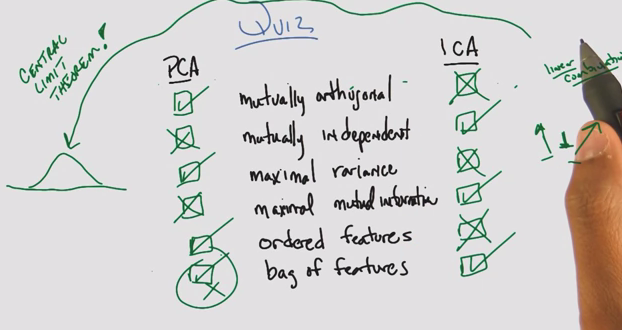 QUIZ
CENTRAL
LIMIT
THEOREM!
PCA
ICA
linear
mutually orthogonal
mutually independent
maximal variance
maximal mutual information
ordered features
bag of features